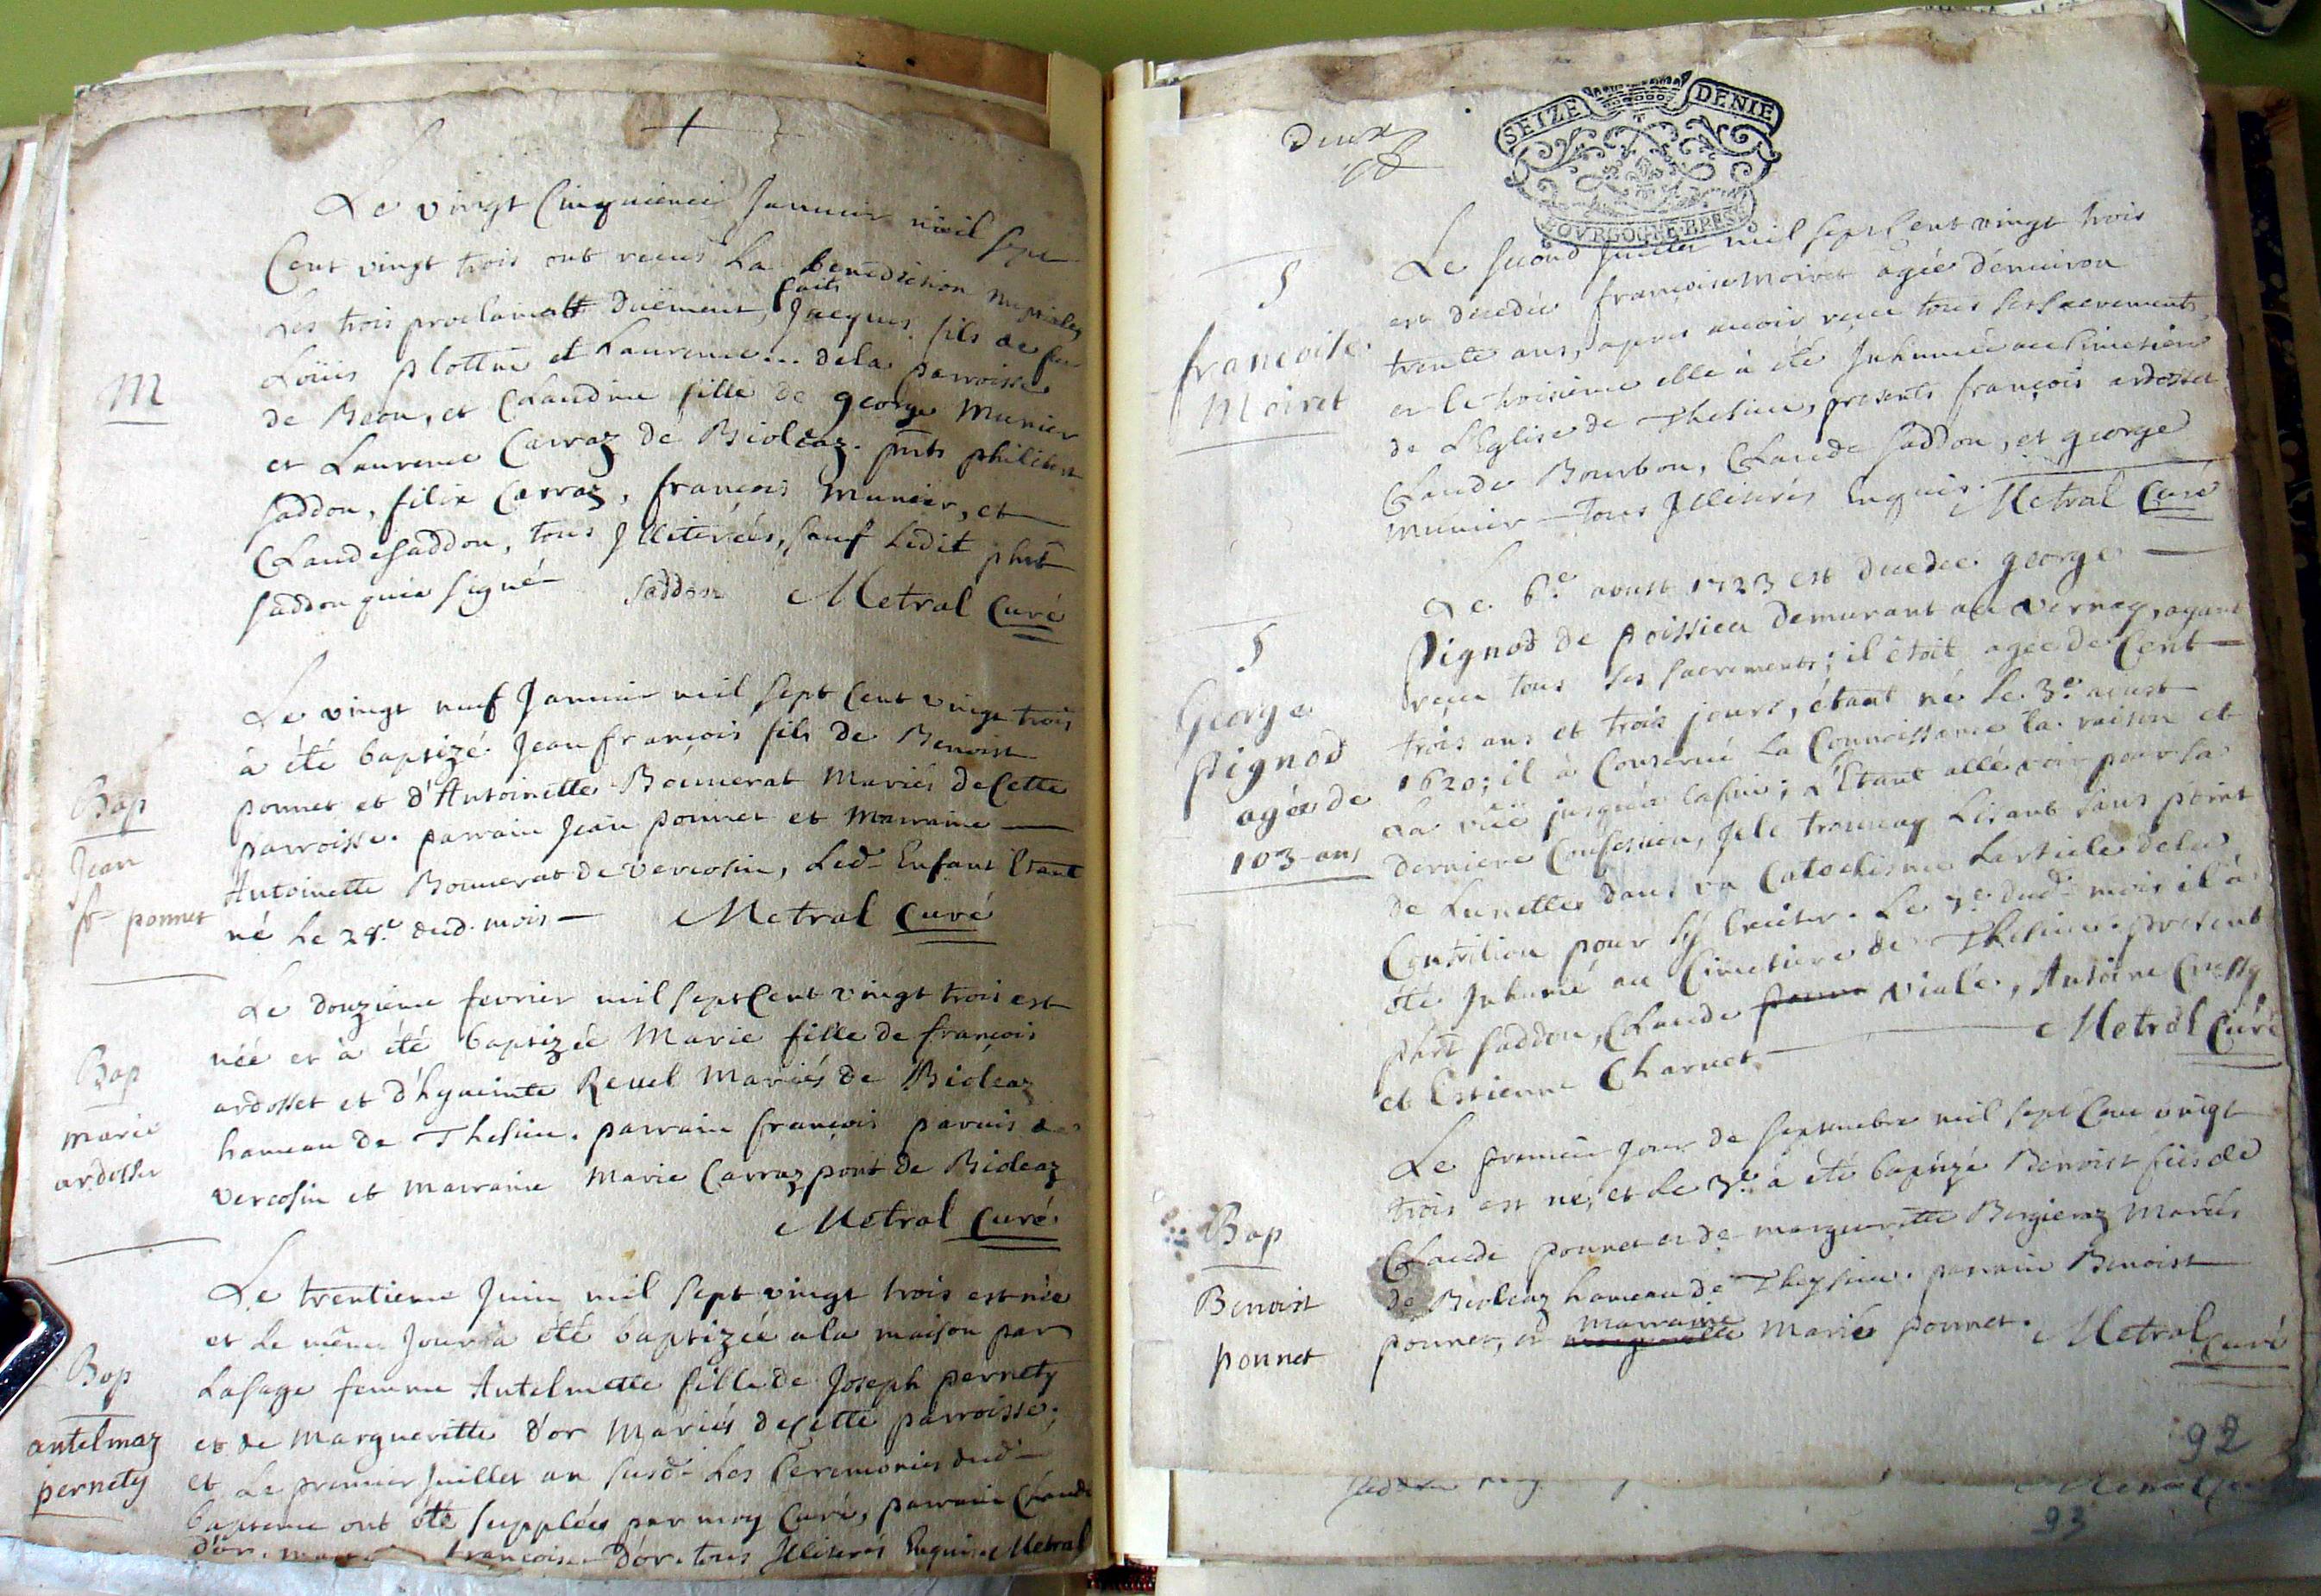 Le vingt cinquieme Janvier mil sept
Cent vingt trois ont receus La benediction nuptiale,
Les trois proclamatt duëment faits, Jacques fils de feu
Loüis plottin et Laurence... dela parroisse
de Beon, et Claudine fille de george Munier
et Laurence Carraz de Bioleaz. pnts philibert
saddon, felix Carraz, francois munier, et
Claude saddon, tous Illiterées, sauf Ledit phbt
saddon quia signé saddon Metral Curé
M
Le vingt neuf Janvier mil sept Cent vingt trois
à été baptizé Jean françois fils de Benoist
ponnet et d'Antoinette Bonnerat Mariés deCette
parroisse. parrain Jean ponnet et Marraine
Antoinette Bonnerat de vercosin, Led. Enfant Etant
né Le 28.e dud. mois Metral Curé
Bap
Jean
fr ponnet
Le douzieme fevrier mil sept Cent vingt trois est
née et à été baptizée Marie fille de françois
ardosset et d'hyacinte Revel Mariés de Bioleaz
hameau de Thesieu. parrain françois parvis de
vercosin et marraine Marie Carraz pont de Bioleaz
Metral Curé
Bap
marie
ardosset
Le trentieme Juin mil sept vingt trois est née
et Le même Jour à été baptizée ala maison par
Lasage femme Antelmette fille de Joseph pernety
et de Margueritte d'or Mariés deCette parroisse;
et Le premier Juillet an susd. Les Ceremonies dud.
bapteme ont été supplées par moy Curé, parrain Claude
d'or. françoise d'or. tous Illiterés Enquis. Metral
Bap
antelmaz
pernety
Deux
SEIZE DENIE
BOVRGOGNE BRESS
Le second Juillet mil sept Cent vingt trois
est decedée françoise Moiret agée d'environ
trente ans, apres avoir receu tous ses sacrements,
et le troisieme elle à été Inhumée au Cimetiere
de L'Eglise de Thesieu, presents françois ardosset
Claude Bourbon, Claude saddon, et george
munier tous Illiterés Enquis. Metral Curé
S
francoise
Moiret
Le 6.e aoust 1723 est decedée george
pignod de poissieu demurant au vernay, ayant
receu tous ses sacrements; il étoit agée de Cent
trois ans et trois jours, étant né le 3.e aoust
1620; il à Conservé La Connoissance la raison et
La vüe jusqu'a lafin; L'Etant allé voir pour sa
derniere Confession, Jele trouvay Lisant sans point
de Lunettes dans un Catechisme Larticle dela
Contrition pour sy Exciter. Le 7.e dud. mois il à
été Inhumé au Cimetiere de Thesieu. present
phbt saddon, Claude vialé, Antoine Cressy
et Estienne Charvet. Metral Curé
S
George
pignod
agée de
103 ans
Le premier Jour de septembre mil sept Cent vingt
trois est né, et Le 3.e à été baptizé Benoist fils de
Claude ponnet et de marguerite Bergieraz Mariés
de Bioleaz hameau de Theysieu. parrain Benoist
ponnet, et marraine Marie ponnet. Metral Curé
Bap
Benoist
ponnet
92
93